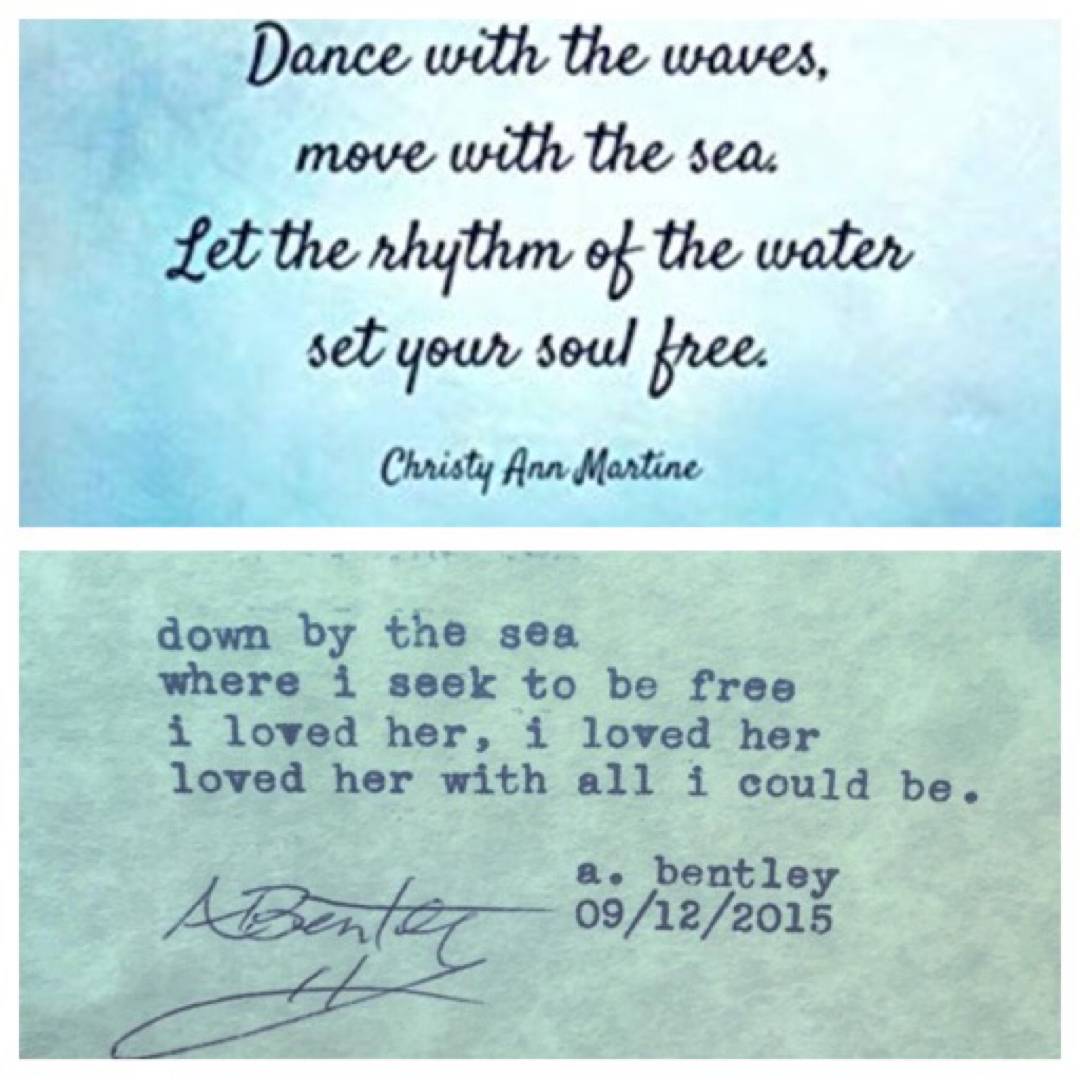 Dance with the waves,
move with the sea.
Let the rhythm of the water
set your soul free.
Christy Ann Martine
down by the sea
where i seek to be free
i loved her, i loved her
loved her with all i could be.
a. bentley
A. Bentley
09/12/2015